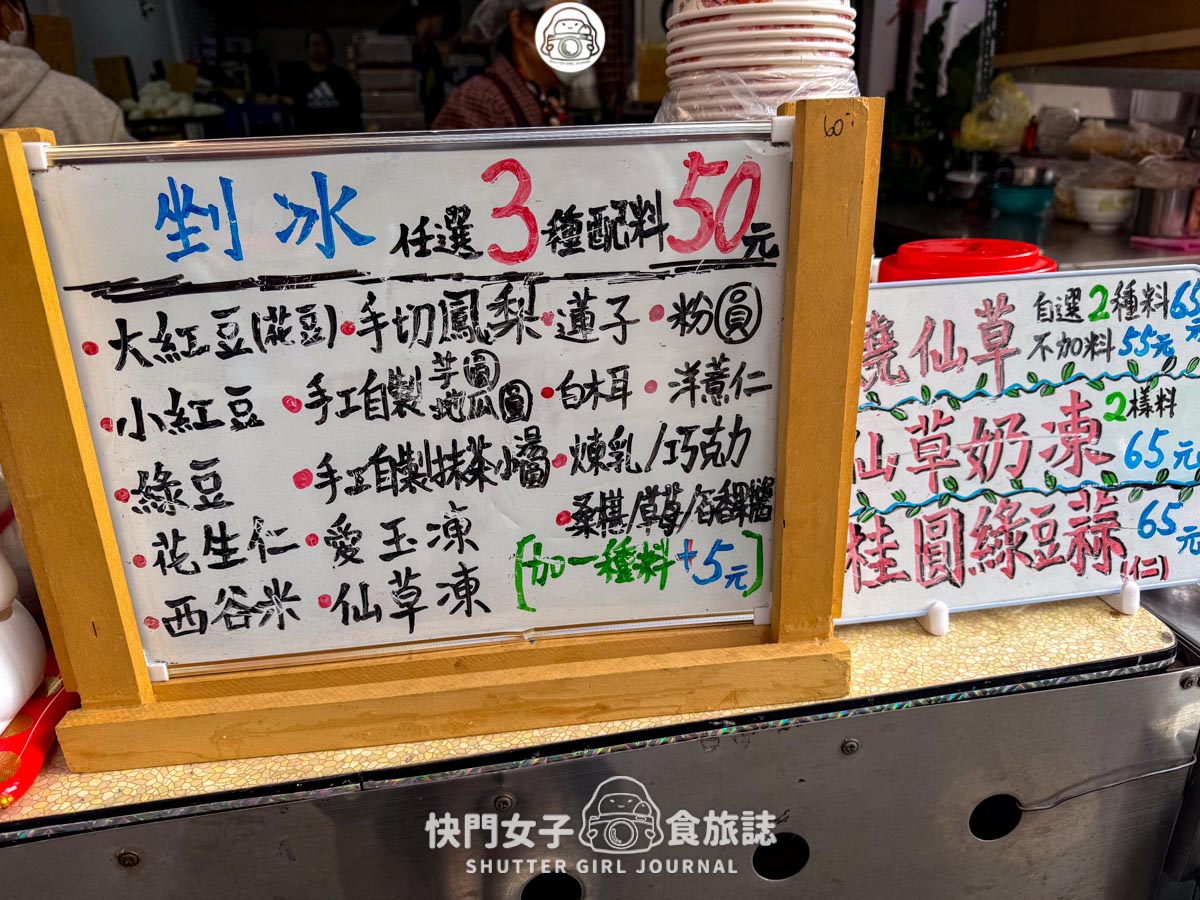 SHUTTER GIRL JOURNAL
60元
剉冰 任選3種配料50元
大紅豆(花豆)•手切鳳梨•蓮子•粉圓
•小紅豆•手工自製芋圓地瓜圓•白木耳•洋薏仁
•綠豆•手工自製抹茶小湯圓•煉乳/巧克力
桑椹/草莓/百香果醬
•花生仁•愛玉凍
[加一種料+5元]
•西谷米•仙草凍
燒仙草 自選2種料65元
不加料55元
仙草奶凍 2樣料
65元
桂圓綠豆蒜(仁) 65元
快門女子食旅誌
SHUTTER GIRL JOURNAL